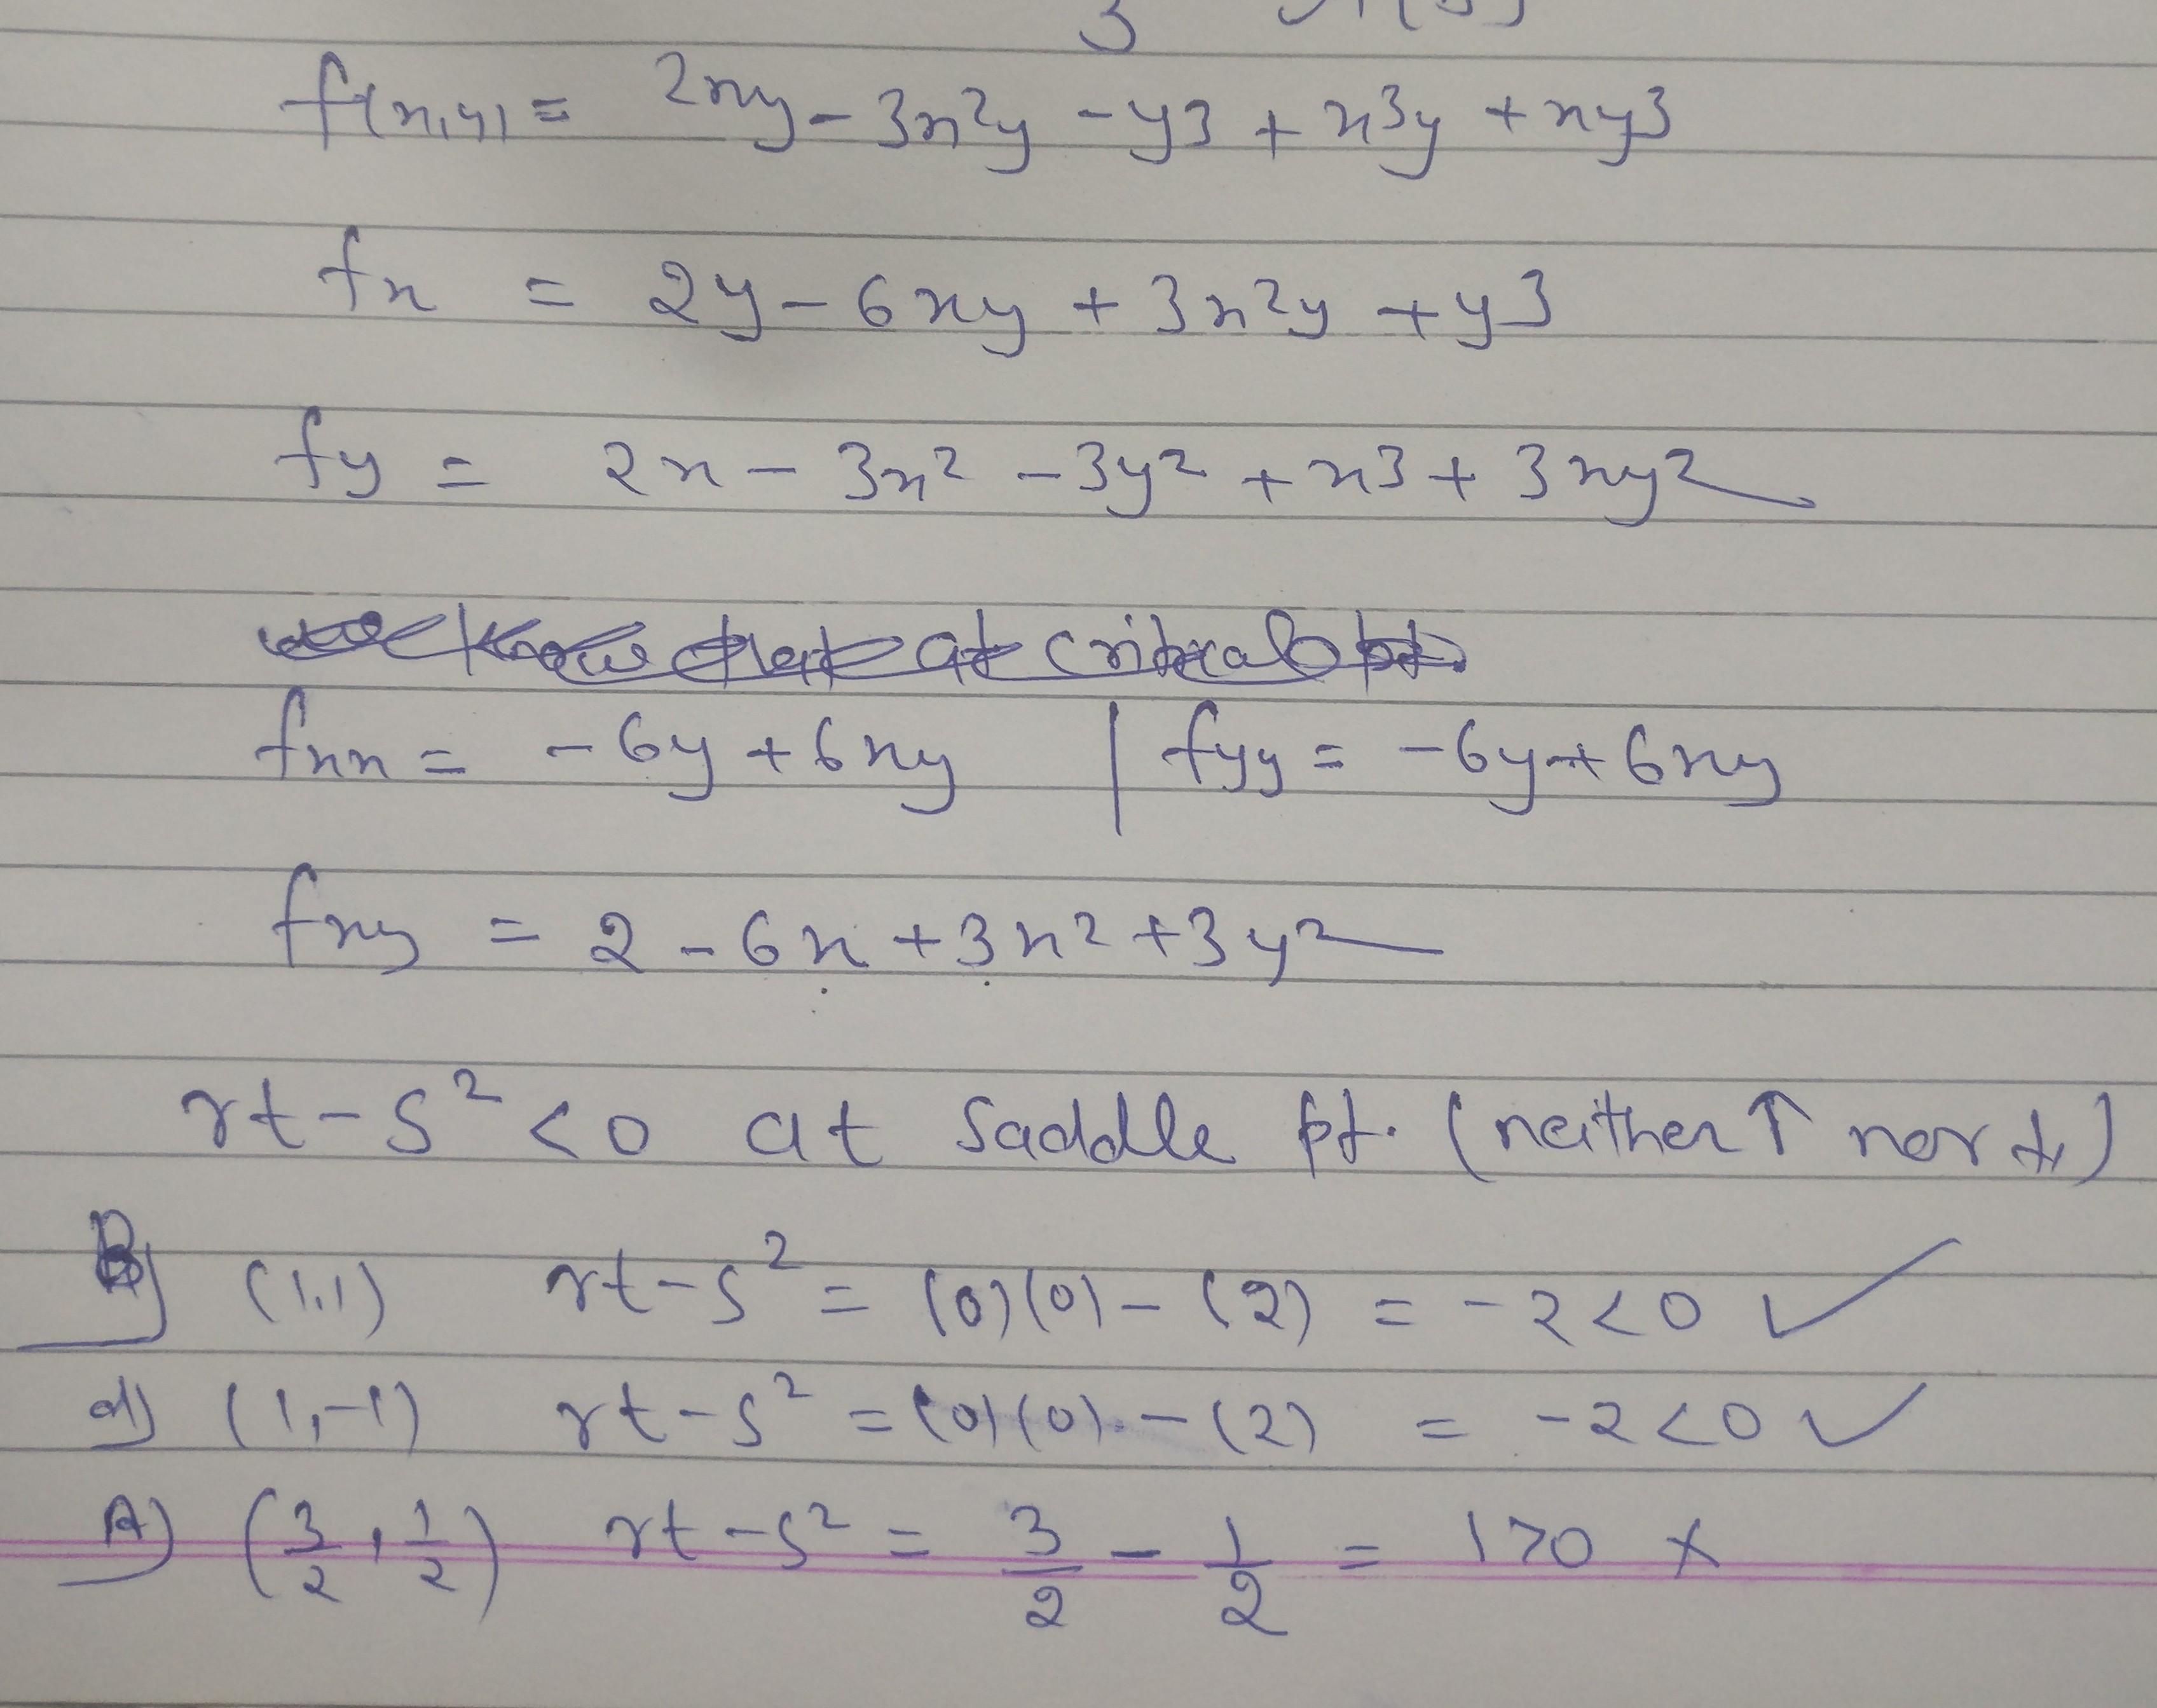 f(x,y) = 2xy - 3x²y - y3 + x³y + xy3
fx = 2y - 6xy + 3x2y + y3
fy = 2x - 3x² - 3y² + x3 + 3xy²
we know that at critical pt.
fxx = -6y + 6xy | fyy = -6y + 6xy
fxy = 2 - 6x + 3x² + 3y²
rt - s² < 0 at saddle pt. (neither ↑ nor ↓)
B) (1,1) rt - s² = (0)(0) - (2) = -2 < 0 ✓
d) (1,-1) rt - s² = (0)(0) - (2) = -2 < 0 ✓
A) (3/2, 1/2) rt - s² = 3/2 - 1/2 = 1 > 0 ×